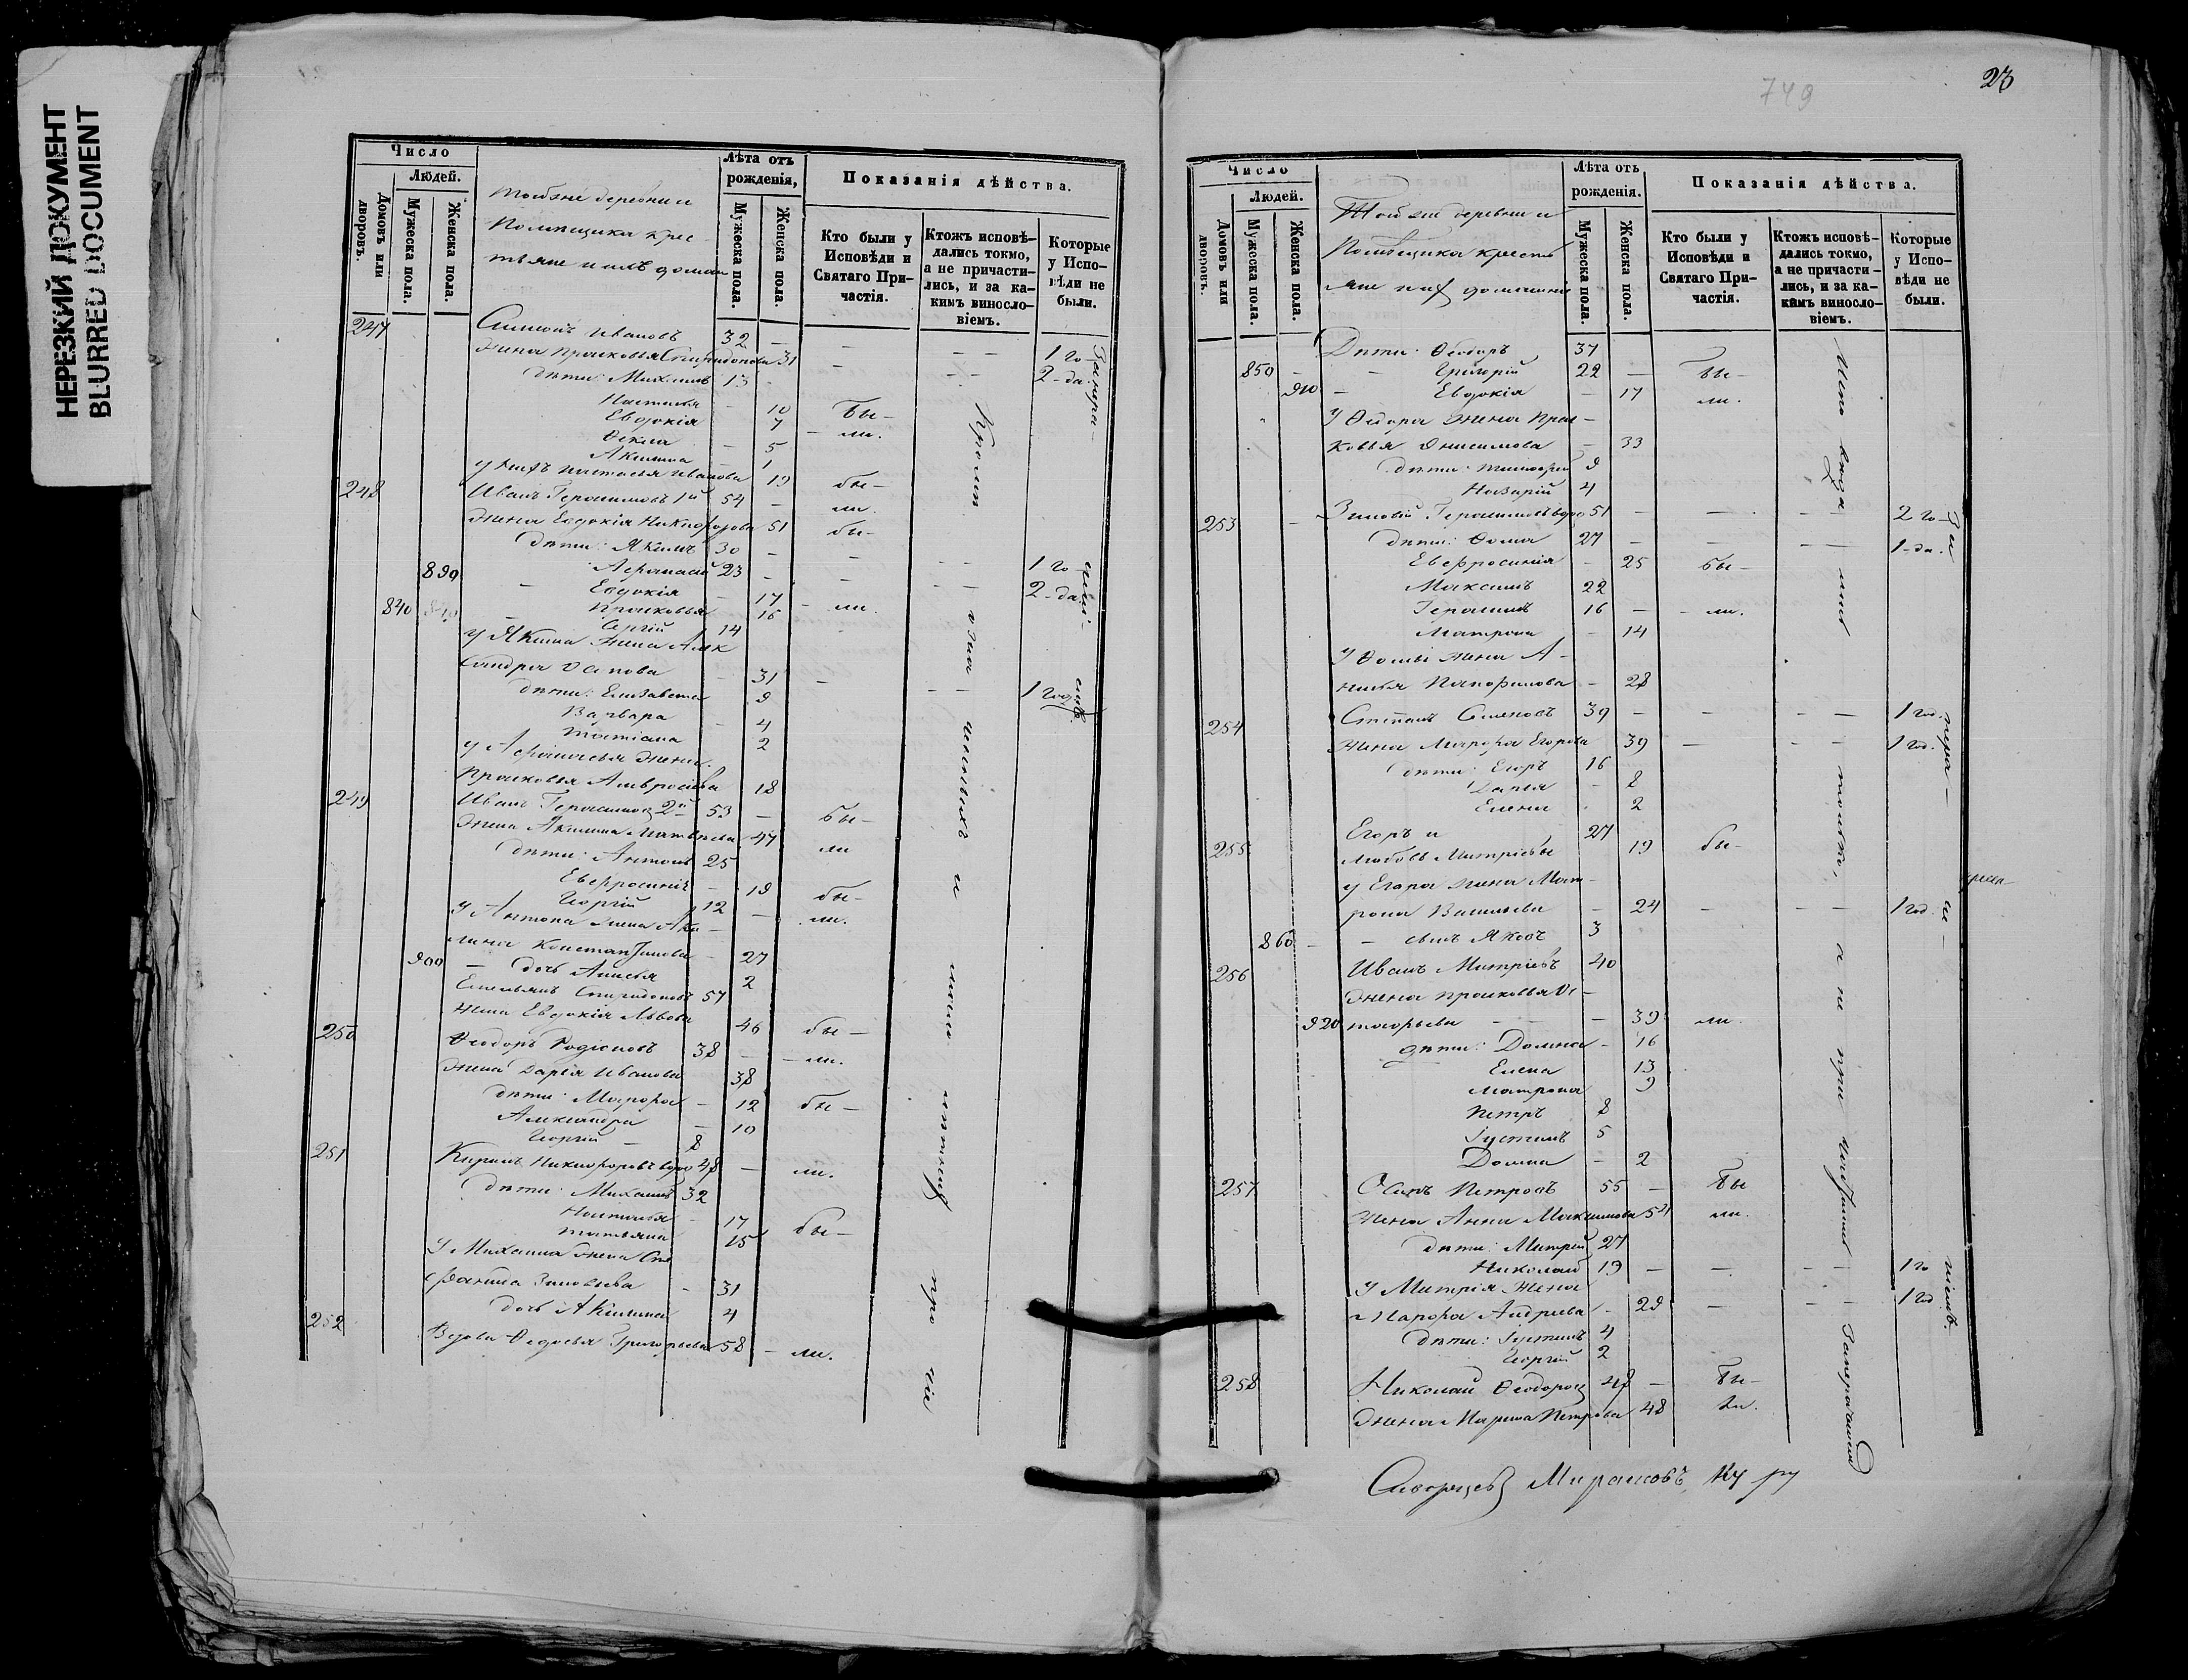 НЕРЕЗКИЙ ДОКУМЕНТ
BLURRED DOCUMENT
Число
Людей.
Домовъ или дворовъ.
Мужеска пола.
Женска пола.
Тойже деревни
Помѣщика крес-
тьяне и ихъ домаш
Лѣта отъ
рожденія,
Мужеска пола.
Женска пола.
Показанія дѣйства.
Кто были у
Исповѣди и
Святаго При-
частія.
Ктожъ исповѣ-
дались токмо,
а не причасти-
лись, и за ка-
кимъ виносло-
віемъ.
Которые
у Испо-
вѣди не
были.
247 Симеонъ Ивановъ 32 —
Жена Прасковья Спиридонова 31 — — — 1 го
дѣти: Михаилъ 13 - — — — 2 - да.
Настасья — 10 Бы-
Евдокія 7 — ли.
Фекла — 5
Акилина — 1
у нихъ Настасья Иванова 19 бы-
248 Иванъ Герасимовъ 1й 54 — ли.
Жена Евдокія Никифорова 51 бы-
дѣти: Якимъ 30 — —
Афанасій 23 - — — — 1 го
890 — Евдокія — 17 — — 2 - да
840 — Прасковья 16 — ли.
Сергій 14
у Якима Жена Алек
сандра Осипова — 31 —
дѣти: Елизавета 9 — — 1 годъ
Варвара — 4
Татіана 2
у Афанасья Жена
Прасковья Амвросіева 18
249 Иванъ Герасимовъ 2й 53 — Бы-
Жена Акилина Матвѣева 47 ли
дѣти: Антонъ 25
Евфросинія — 19 бы-
Георгій 12 — ли.
У Антона Жена Аки-
лина Константинова — 27
900 — дочь Анисья 2
Емельянъ Спиридоновъ 57
Жена Евдокія Львова 46 бы —
250 Ѳеодоръ Родіоновъ 38 — — ли.
Жена Дарья Иванова 38
дѣти: Марфа — 12 бы —
Александра — 10
Георгій — 8
251 Кирилъ Никифоровъ вдов 48 — ли.
дѣти: Михаилъ 32
Наталья — 17
Татьяна 15 бы —
У Михаила Жена Сте
фанида Зиновьева — 31
дочь Акилина 4
252 Вдова Федосья Григорьева 58 — ли.
749
23
Число
Людей.
Домовъ или дворовъ.
Мужеска пола.
Женска пола.
Той же деревни
Помѣщика кресть
яне и ихъ домашніе
Лѣта отъ
рожденія.
Мужеска пола.
Женска пола.
Показанія дѣйства.
Кто были у
Исповѣди и
Святаго При-
частія.
Ктожъ исповѣ-
дались токмо,
а не причасти-
лись, и за ка-
кимъ виносло-
віемъ.
Которые
у Испо-
вѣди не
были.
Дѣти: Ѳеодоръ 37
850 — — Григорій 22 — Бы-
910 — Евдокія — 17 ли.
У Ѳедора Жена Прас-
ковья Анисимова — 33
дѣти: Тимофей 9
Назарій 4
253 — Зиновій Герасимовъ вдов 51 — — — — 2 го
дѣти: Фома 27 — — — — 1 - да.
Евфросинія — 25 Бы-
Максимъ 22
Герасимъ 16 — — ли.
Матрона — 14
У Фомы Жена А-
нисья Панфилова — 28
254 Степанъ Семеновъ 39 — — — — 1 год.
Жена Марфа Егорова 39 — — — 1 год.
дѣти: Егоръ 16
Дарья — 8
Елена - 2
255 Егоръ и 27
Любовь Митріевы 19 бы-
у Егора Жена Мат-
рона Васильева — 24 — — — 1 год
860 — — сынъ Яковъ 3
256 Иванъ Митріевъ 40
Жена Прасковья
920 — — — 39 ли
дѣти: Домна — 16
Елена 13
Матрона 9
Петръ 8
Іустинъ 5
Домна — 2
257 Осипъ Петровъ 55 — Бы
Жена Анна Максимова 51 ли.
дѣти: Митрій 27
Николай 19 — — — — 1 го
У Митрія Жена
Марфа Андреева — 29 — — — 1 год
дѣти: Іустинъ 4
Георгій 2
258 Николай Ѳеодоровъ 48 — Бы-
Жена Марина Петрова 48 ли.